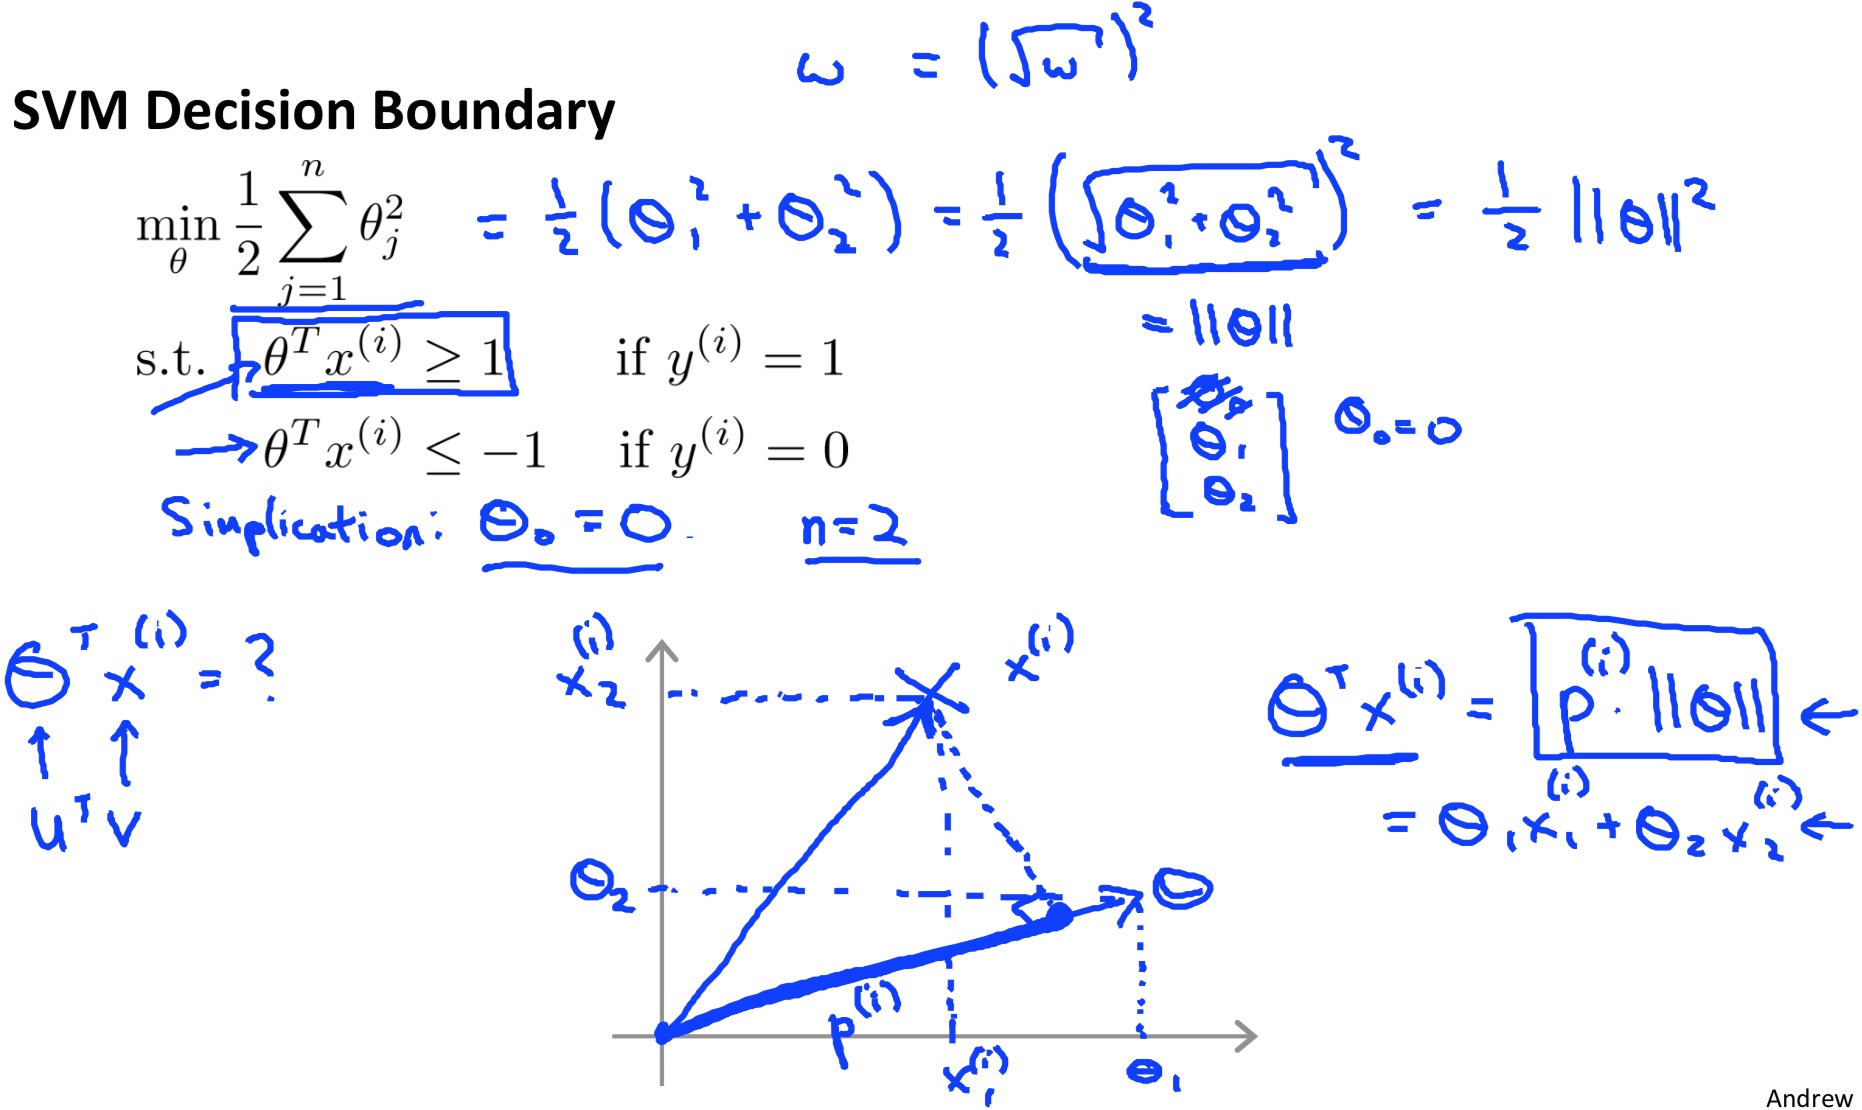 ω = (√ω)²
SVM Decision Boundary
min_θ 1/2 ∑_{j=1}^{n} θ_j² = 1/2 (θ₁² + θ₂²) = 1/2 (√(θ₁² + θ₂²))² = 1/2 ||θ||²
= ||θ||
s.t. θᵀx⁽ⁱ⁾ ≥ 1 if y⁽ⁱ⁾ = 1
[θ₀ θ₁ θ₂] θ₀ = 0
θᵀx⁽ⁱ⁾ ≤ −1 if y⁽ⁱ⁾ = 0
Simplication: θ₀ = 0. n=2
θᵀx⁽ⁱ⁾ = ?
uᵀv
x₂⁽ⁱ⁾
x⁽ⁱ⁾
θ₂
θ
p⁽ⁱ⁾
x₁⁽ⁱ⁾
θ₁
θᵀx⁽ⁱ⁾ = p⁽ⁱ⁾ · ||θ|| ←
= θ₁x₁⁽ⁱ⁾ + θ₂x₂⁽ⁱ⁾ ←
Andrew